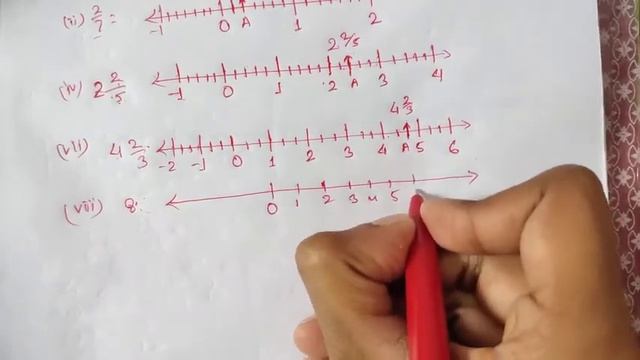 (ii) 2/7 = -1 0 A 1 2
2 2/5
(iv) 2 2/5 -1 0 1 2 A 3 4
4 2/3
(vii) 4 2/3 -2 -1 0 1 2 3 4 A 5 6
(viii) 8: 0 1 2 3 4 5